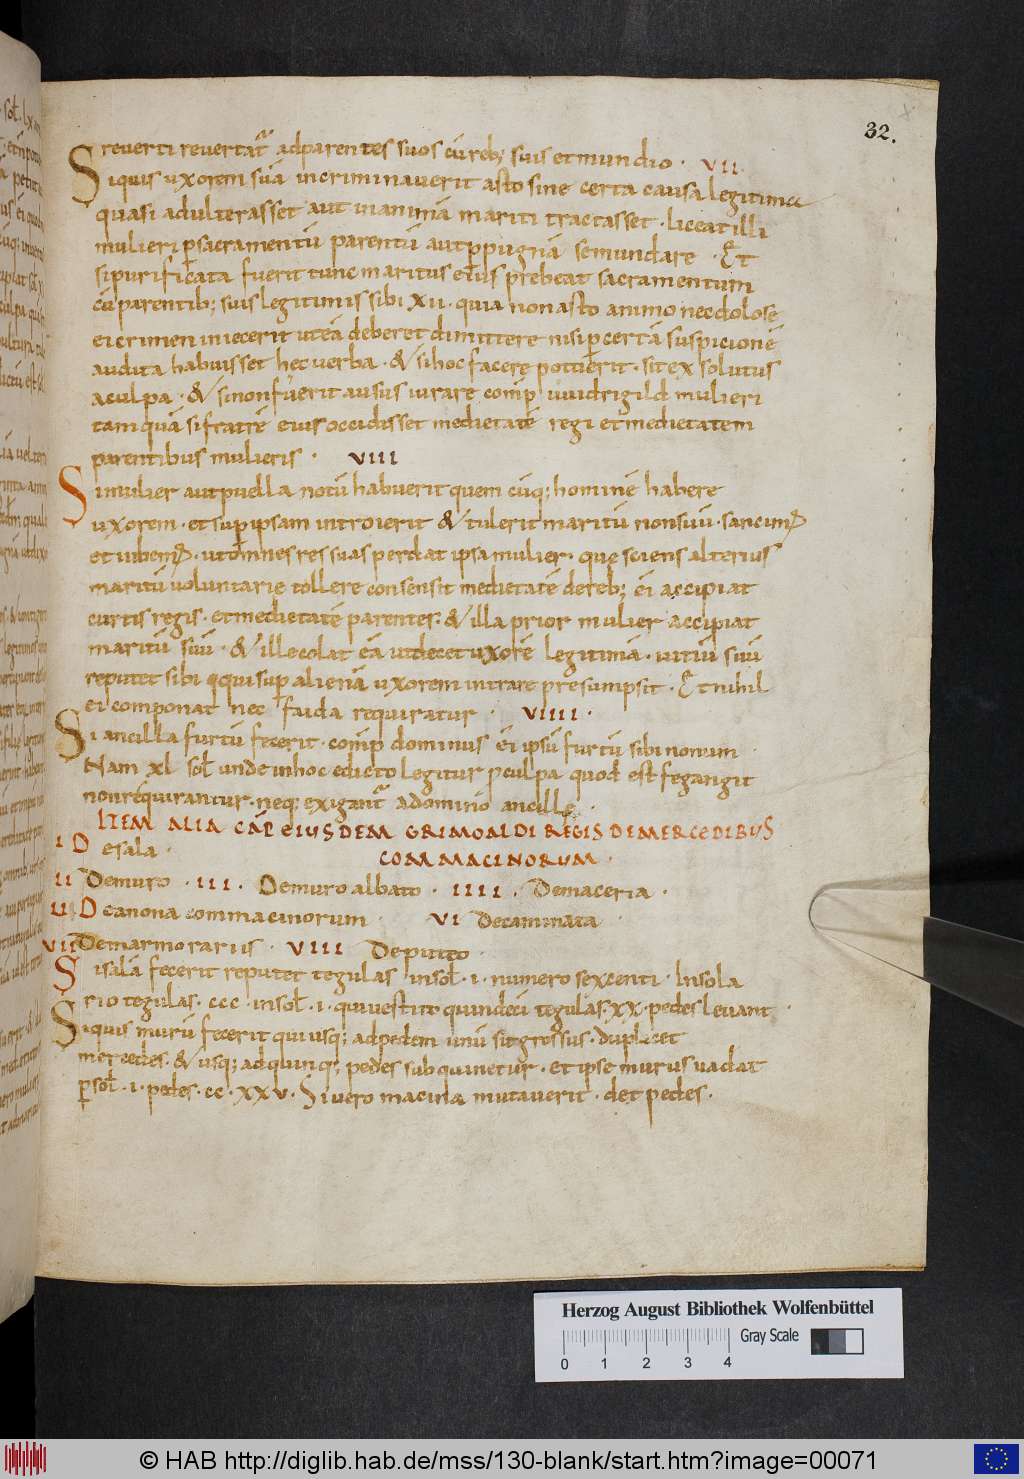 32.
reverti revertat᷑ ad parentes suos cū reb; suis et mundio · VII
Si quis uxorem suā incriminaverit asto sine certa causa legitima
quasi adulterasset aut in animā mariti tractasset · liceat illi
mulieri p̱ sacramentū parentū aut p̱ pugnā se mundare · Et
si purificata fuerit tunc maritus eius prebeat sacramentum
cū parentib; suis legitimis sibi XII · quia non asto animo nec dolose
ei crimen iniecerit ut eā deberet dimittere nisi p̱ certā suspicionē
audita habuisset hec verba · & si hoc facere potuerit · sit exsolutus
a culpa · & si non fuerit ausus iurare comp̄ uuidrigild mulieri
tamquā si fratrē eius occidisset medietatē regi et medietatem
parentibus mulieris · VIII
Si mulier aut puella notū habuerit quem cūq; hominē habere
uxorem · et sup̱ ipsam introierit & tulerit maritū non suū · sancim᷑
et iubem᷑ · ut omnes res suas perdat ipsa mulier · que sciens alterius
maritū voluntarie tollere consensit medietatē de reb; ei accipiat
curtis regis · et medietatē parentes · & illa prior mulier accipiat
maritū suū · & ille colat eā ut decet uxorē legitimā · vitiū suū
reputet sibi qui sup̱ alienā uxorem intrare presumpsit · Et nihil
ei componat nec faida requiratur · VIIII ·
Si ancilla furtū fecerit · comp̄ dominus ei ipsū furtū sibi nonum
Nam XL sol̄ unde in hoc edicto legitur p culpa quod est fegangit
non requirantur · neq; exigant᷑ a domino ancille ·
ITEM ALIA CAP̄ EIUSDEM GRIMOALDI REGIS DE MERCEDIBUS
I De sala · COMMACINORUM ·
II De muro · III · De muro albato · IIII · De maceria ·
De annona commacinorum · VI De caminata ·
VII De marmorarius · VIII De puteo ·
Si salā fecerit reputet tegulas · in sol̄ · I · numero sexcenti · In sola
rio tegulas · CCC · in sol̄ · I · qui vestit quindeci tegulas · XX · pedes levant ·
Si quis murū fecerit qui usq; ad pedem unū sit grossus · duplicet
mercedes · & usq; ad quinq; pedes sub quinetur · et ipse murus vadat
p̱ sol̄ · I · pedes · CC · XXV · Si vero macina mutaverit · det pedes ·
Herzog August Bibliothek Wolfenbüttel
Gray Scale
0 1 2 3 4
© HAB http://diglib.hab.de/mss/130-blank/start.htm?image=00071